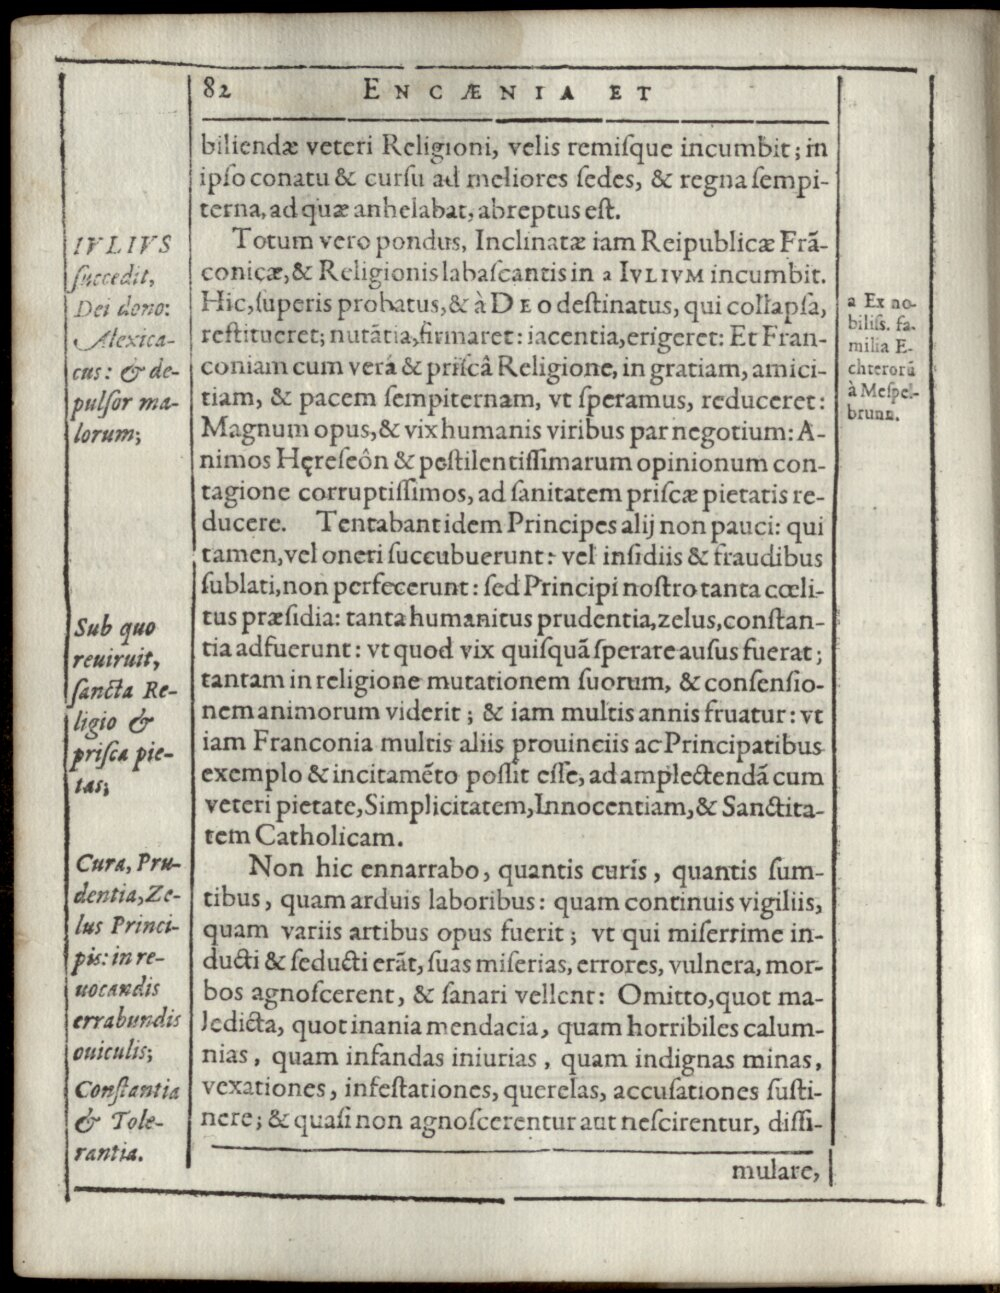 82 ENCÆNIA ET
biliendæ veteri Religioni, velis remiſque incumbit; in
ipſo conatu & curſu ad meliores ſedes, & regna ſempi-
terna, ad quæ anhelabat, abreptus eſt.
Totum vero pondus, Inclinatæ iam Reipublicæ Frã-
conicæ, & Religionis labaſcantis in a IVLIVM incumbit.
Hic, ſuperis probatus, & à DEo deſtinatus, qui collapſa,
reſtitueret; nutãtia, firmaret: iacentia, erigeret: Et Fran-
coniam cum verâ & priſcâ Religione, in gratiam, amici-
tiam, & pacem ſempiternam, vt ſperamus, reduceret:
Magnum opus, & vix humanis viribus par negotium: A-
nimos Hęreſeôn & peſtilentiſſimarum opinionum con-
tagione corruptiſſimos, ad ſanitatem priſcæ pietatis re-
ducere. Tentabant idem Principes alij non pauci: qui
tamen, vel oneri ſuccubuerunt: vel inſidiis & fraudibus
ſublati, non perfecerunt: ſed Principi noſtro tanta cœli-
tus præſidia: tanta humanitus prudentia, zelus, conſtan-
tia adfuerunt: vt quod vix quiſquã ſperare auſus fuerat;
tantam in religione mutationem ſuorum, & conſenſio-
nem animorum viderit; & iam multis annis fruatur: vt
iam Franconia multis aliis prouinciis ac Principatibus
exemplo & incitamẽto poſſit eſſe, ad amplectendã cum
veteri pietate, Simplicitatem, Innocentiam, & Sanctita-
tem Catholicam.
Non hic ennarrabo, quantis curis, quantis ſum-
tibus, quam arduis laboribus: quam continuis vigiliis,
quam variis artibus opus fuerit; vt qui miſerrime in-
ducti & ſeducti erãt, ſuas miſerias, errores, vulnera, mor-
bos agnoſcerent, & ſanari vellent: Omitto, quot ma-
ledicta, quot inania mendacia, quam horribiles calum-
nias, quam infandas iniurias, quam indignas minas,
vexationes, infeſtationes, querelas, accuſationes ſuſti-
nere; & quaſi non agnoſcerentur aut neſcirentur, diſſi-
mulare,
IVLIVS
ſuccedit,
Dei dono:
Alexica-
cus: & de-
pulſor ma-
lorum;
Sub quo
reuiruit,
ſancta Re-
ligio &
priſca pie-
tas;
Cura, Pru-
dentia, Ze-
lus Princi-
pis: in re-
uocandis
errabundis
ouiculis;
Conſtantia
& Tole-
rantia.
a Ex no-
biliſs. fa-
milia E-
chterorũ
à Meſpel-
brunn.